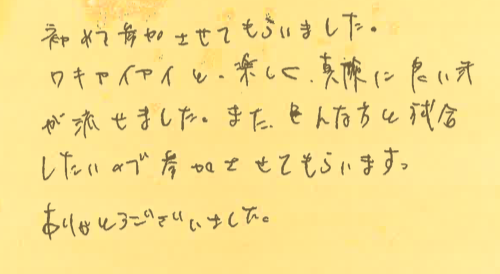 初めて参加させてもらいました。
ワキアイアイと、楽しく、真剣に良い汗
が流せました。また、色んな方と試合
したいので参加させてもらいます。
ありがとうございました。